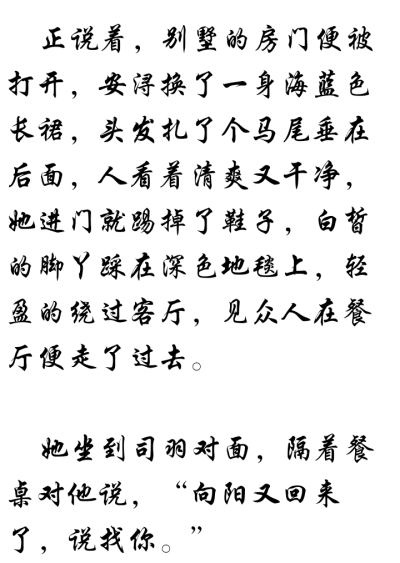 正说着，别墅的房门便被
打开，安浔换了一身海蓝色
长裙，头发扎了个马尾垂在
后面，人看着清爽又干净，
她进门就踢掉了鞋子，白皙
的脚丫踩在深色地毯上，轻
盈的绕过客厅，见众人在餐
厅便走了过去。
她坐到司羽对面，隔着餐
桌对他说，“向阳又回来
了，说找你。”